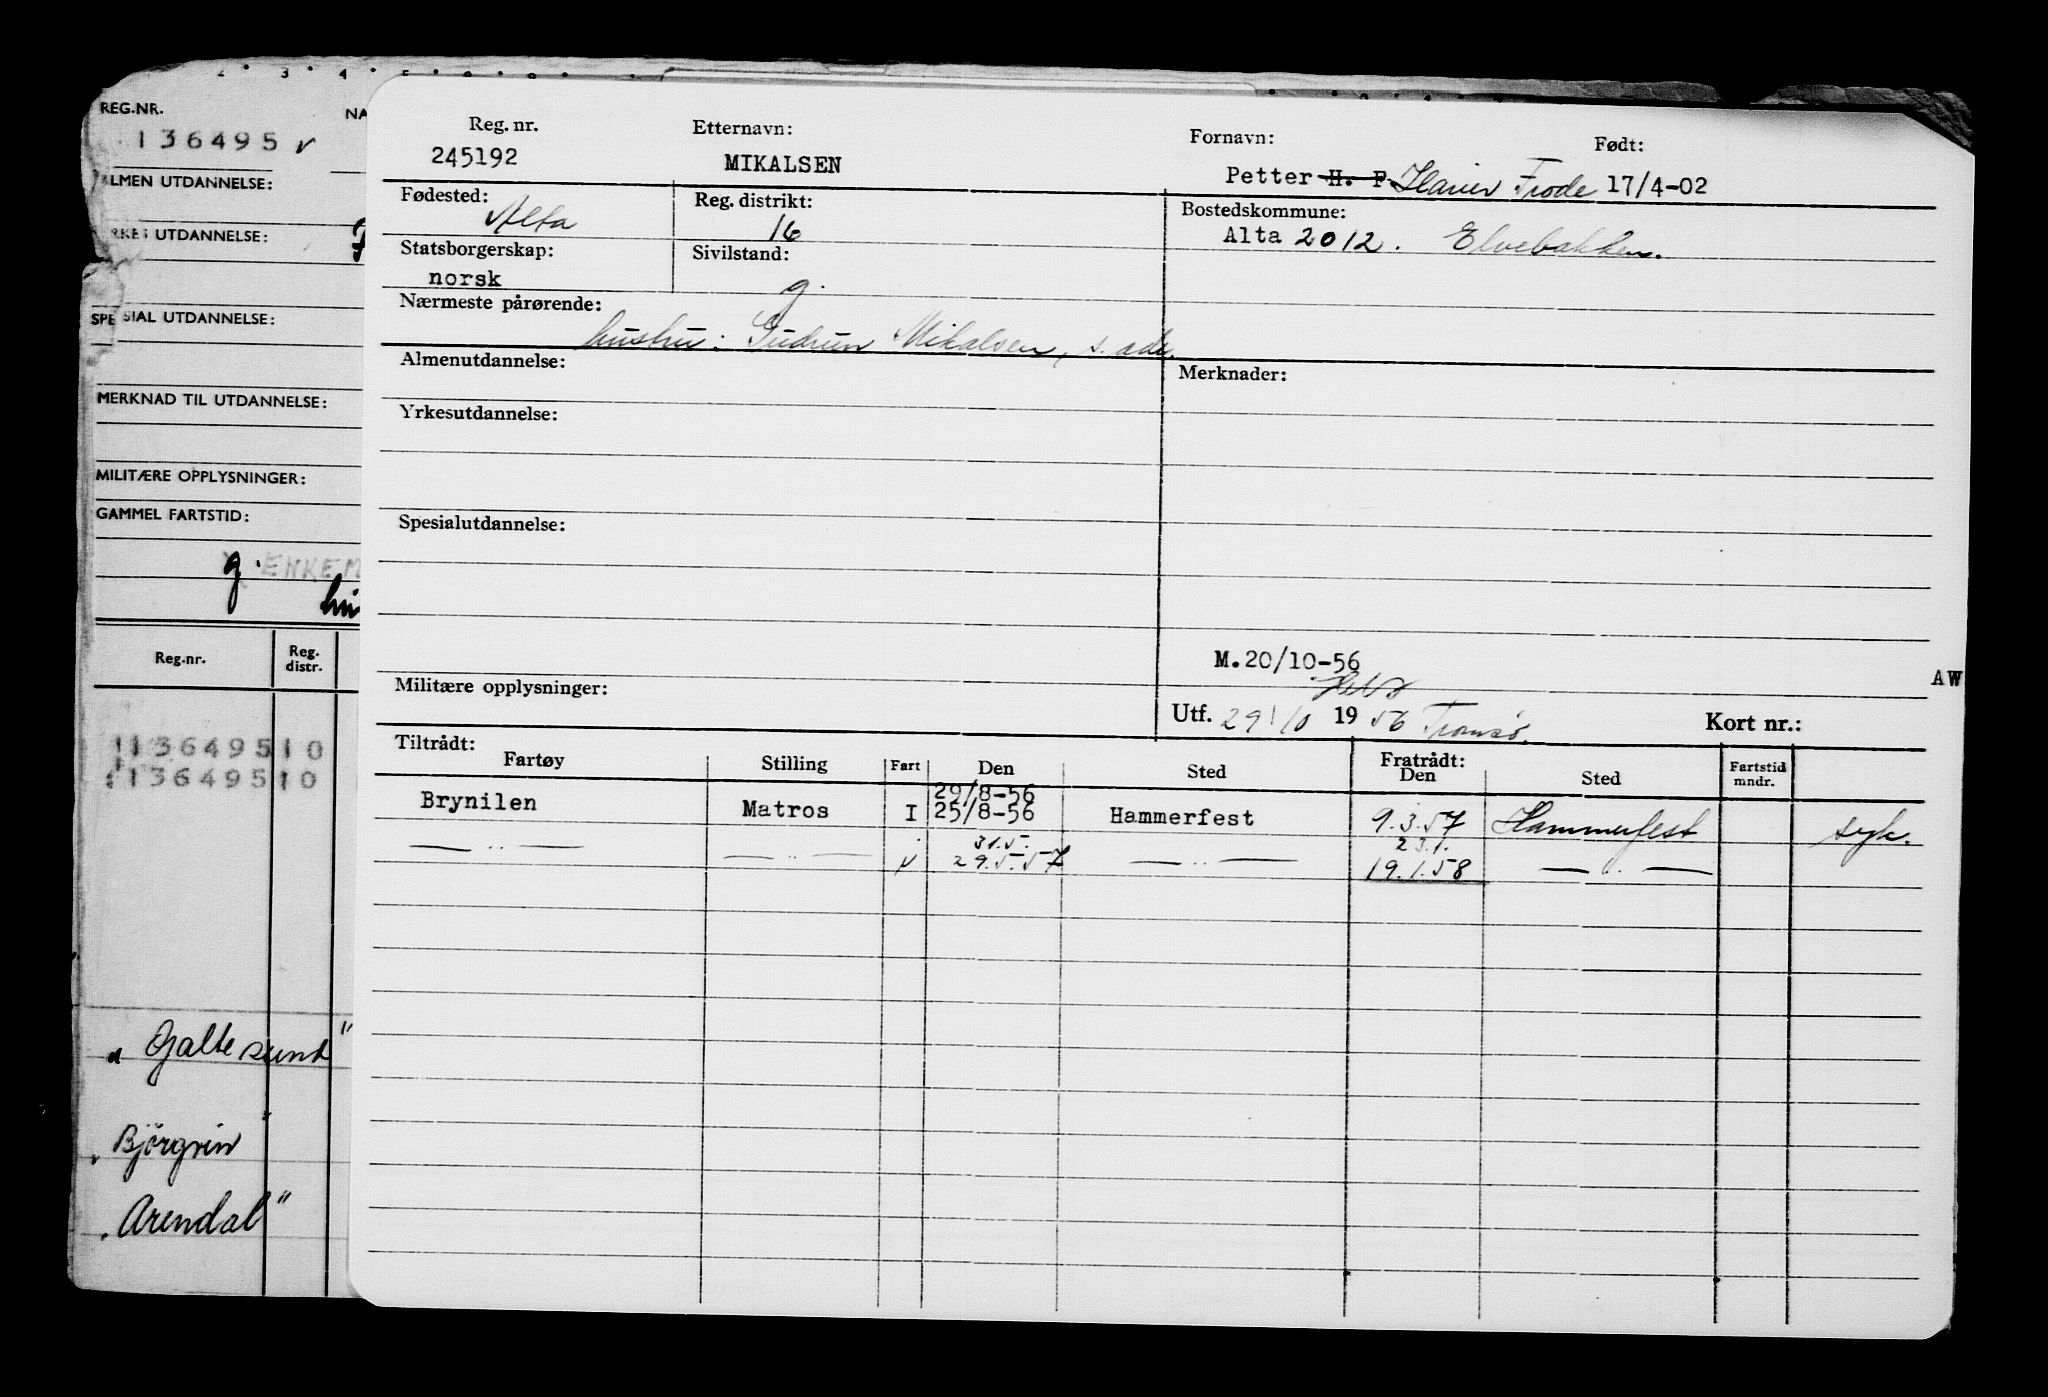 2 · 3 · 4 ·
REG.NR.
NA
136495
ALMEN UTDANNELSE:
UTDANNELSE:
SPESIAL UTDANNELSE:
MERKNAD TIL UTDANNELSE:
MILITÆRE OPPLYSNINGER:
GAMMEL FARTSTID:
g. ENKEM
hu
Reg.nr. Reg. distr.
136495 10
136495 10
"Galtesund"
Björgvin
"Arendal"
Reg. nr. Etternavn: Fornavn: Født:
245192 MIKALSEN Petter H. F. Frode 17/4-02
Fødested: Reg. distrikt: Bostedskommune:
Alta 16 Alta 2012. Elvebakken.
Statsborgerskap: Sivilstand:
norsk g.
Nærmeste pårørende:
hustru: Gudrun Mikalsen, s. adr.
Almenutdannelse: Merknader:
Yrkesutdannelse:
Spesialutdannelse:
M.20/10-56
AW
Militære opplysninger:
Utf. 29/10 1956 Tromsø. Kort nr.:
Tiltrådt: Fratrådt:
Fartøy Stilling Fart Den Sted Den Sted Fartstid mndr.
29/8-56
Brynilen Matros I 25/8-56 Hammerfest 9.3.57 Hammerfest syk.
31.5. 23.1.
— " — — " — 29.5.57 — " — 19.1.58 — " —